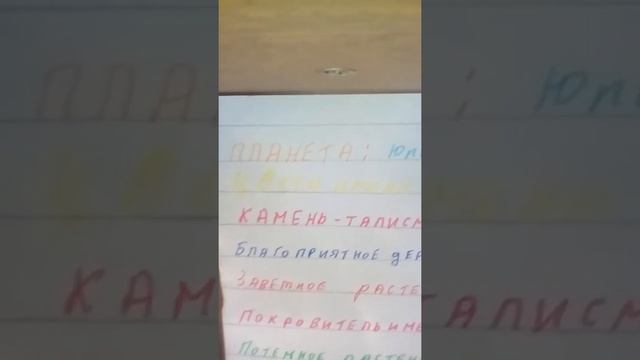 ПЛАНЕТА: Юп
КАМЕНЬ-ТАЛИСМ
БЛАГОПРИЯТНОЕ ДЕР
ЗАВЕТНОЕ РАСТЕ
ПОКРОВИТЕЛЬ ИМЕ
ПОТЕМНОЕ РАСТЕН